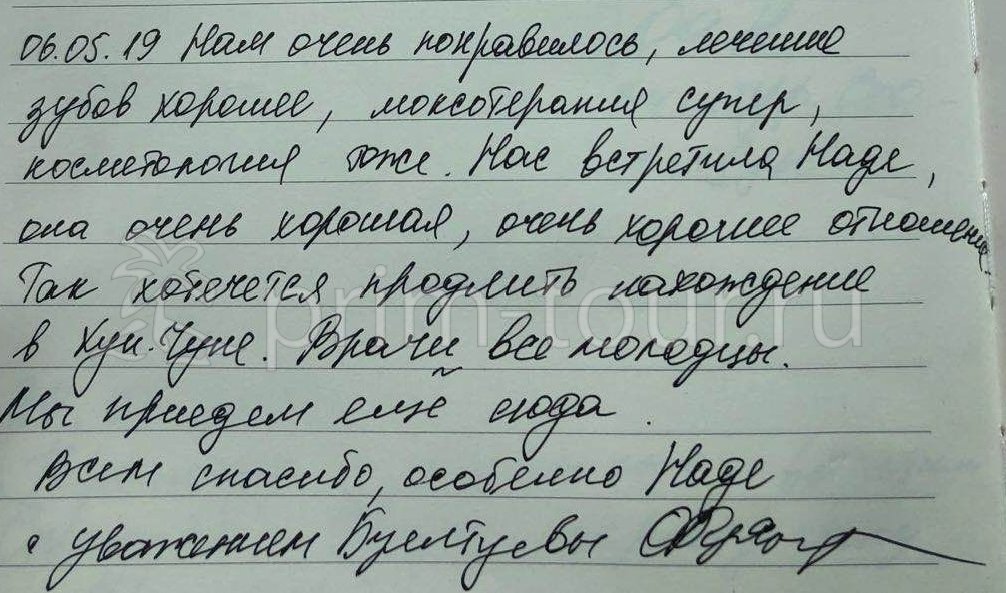 06.05.19 Нам очень понравилось, лечение
зубов хорошее, моксотерапия супер,
косметология тоже. Нас встретила Надя,
она очень хорошая, очень хорошее отношение.
Так хочется продлить нахождение
в Хун-Чуне. Врачи все молодцы.
Мы приедем еще сюда.
Всем спасибо, особенно Наде
с уважением
prim-tour.ru